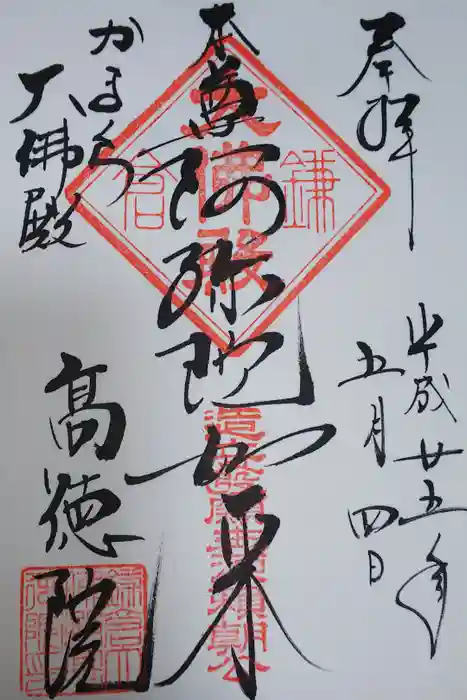 奉拝
平成廿五年
五月四日
本尊阿弥陀如来
大佛殿
鎌倉
かまくら
大佛殿
高徳院